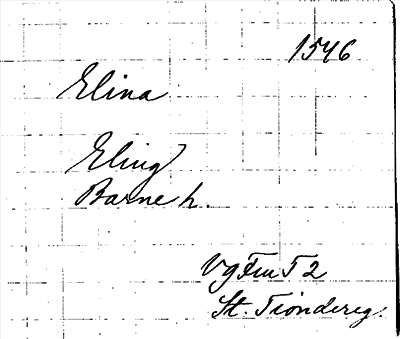 1546
Elina
Eling
Barne h.
Vg Fru T 2
St. Tiondereg.